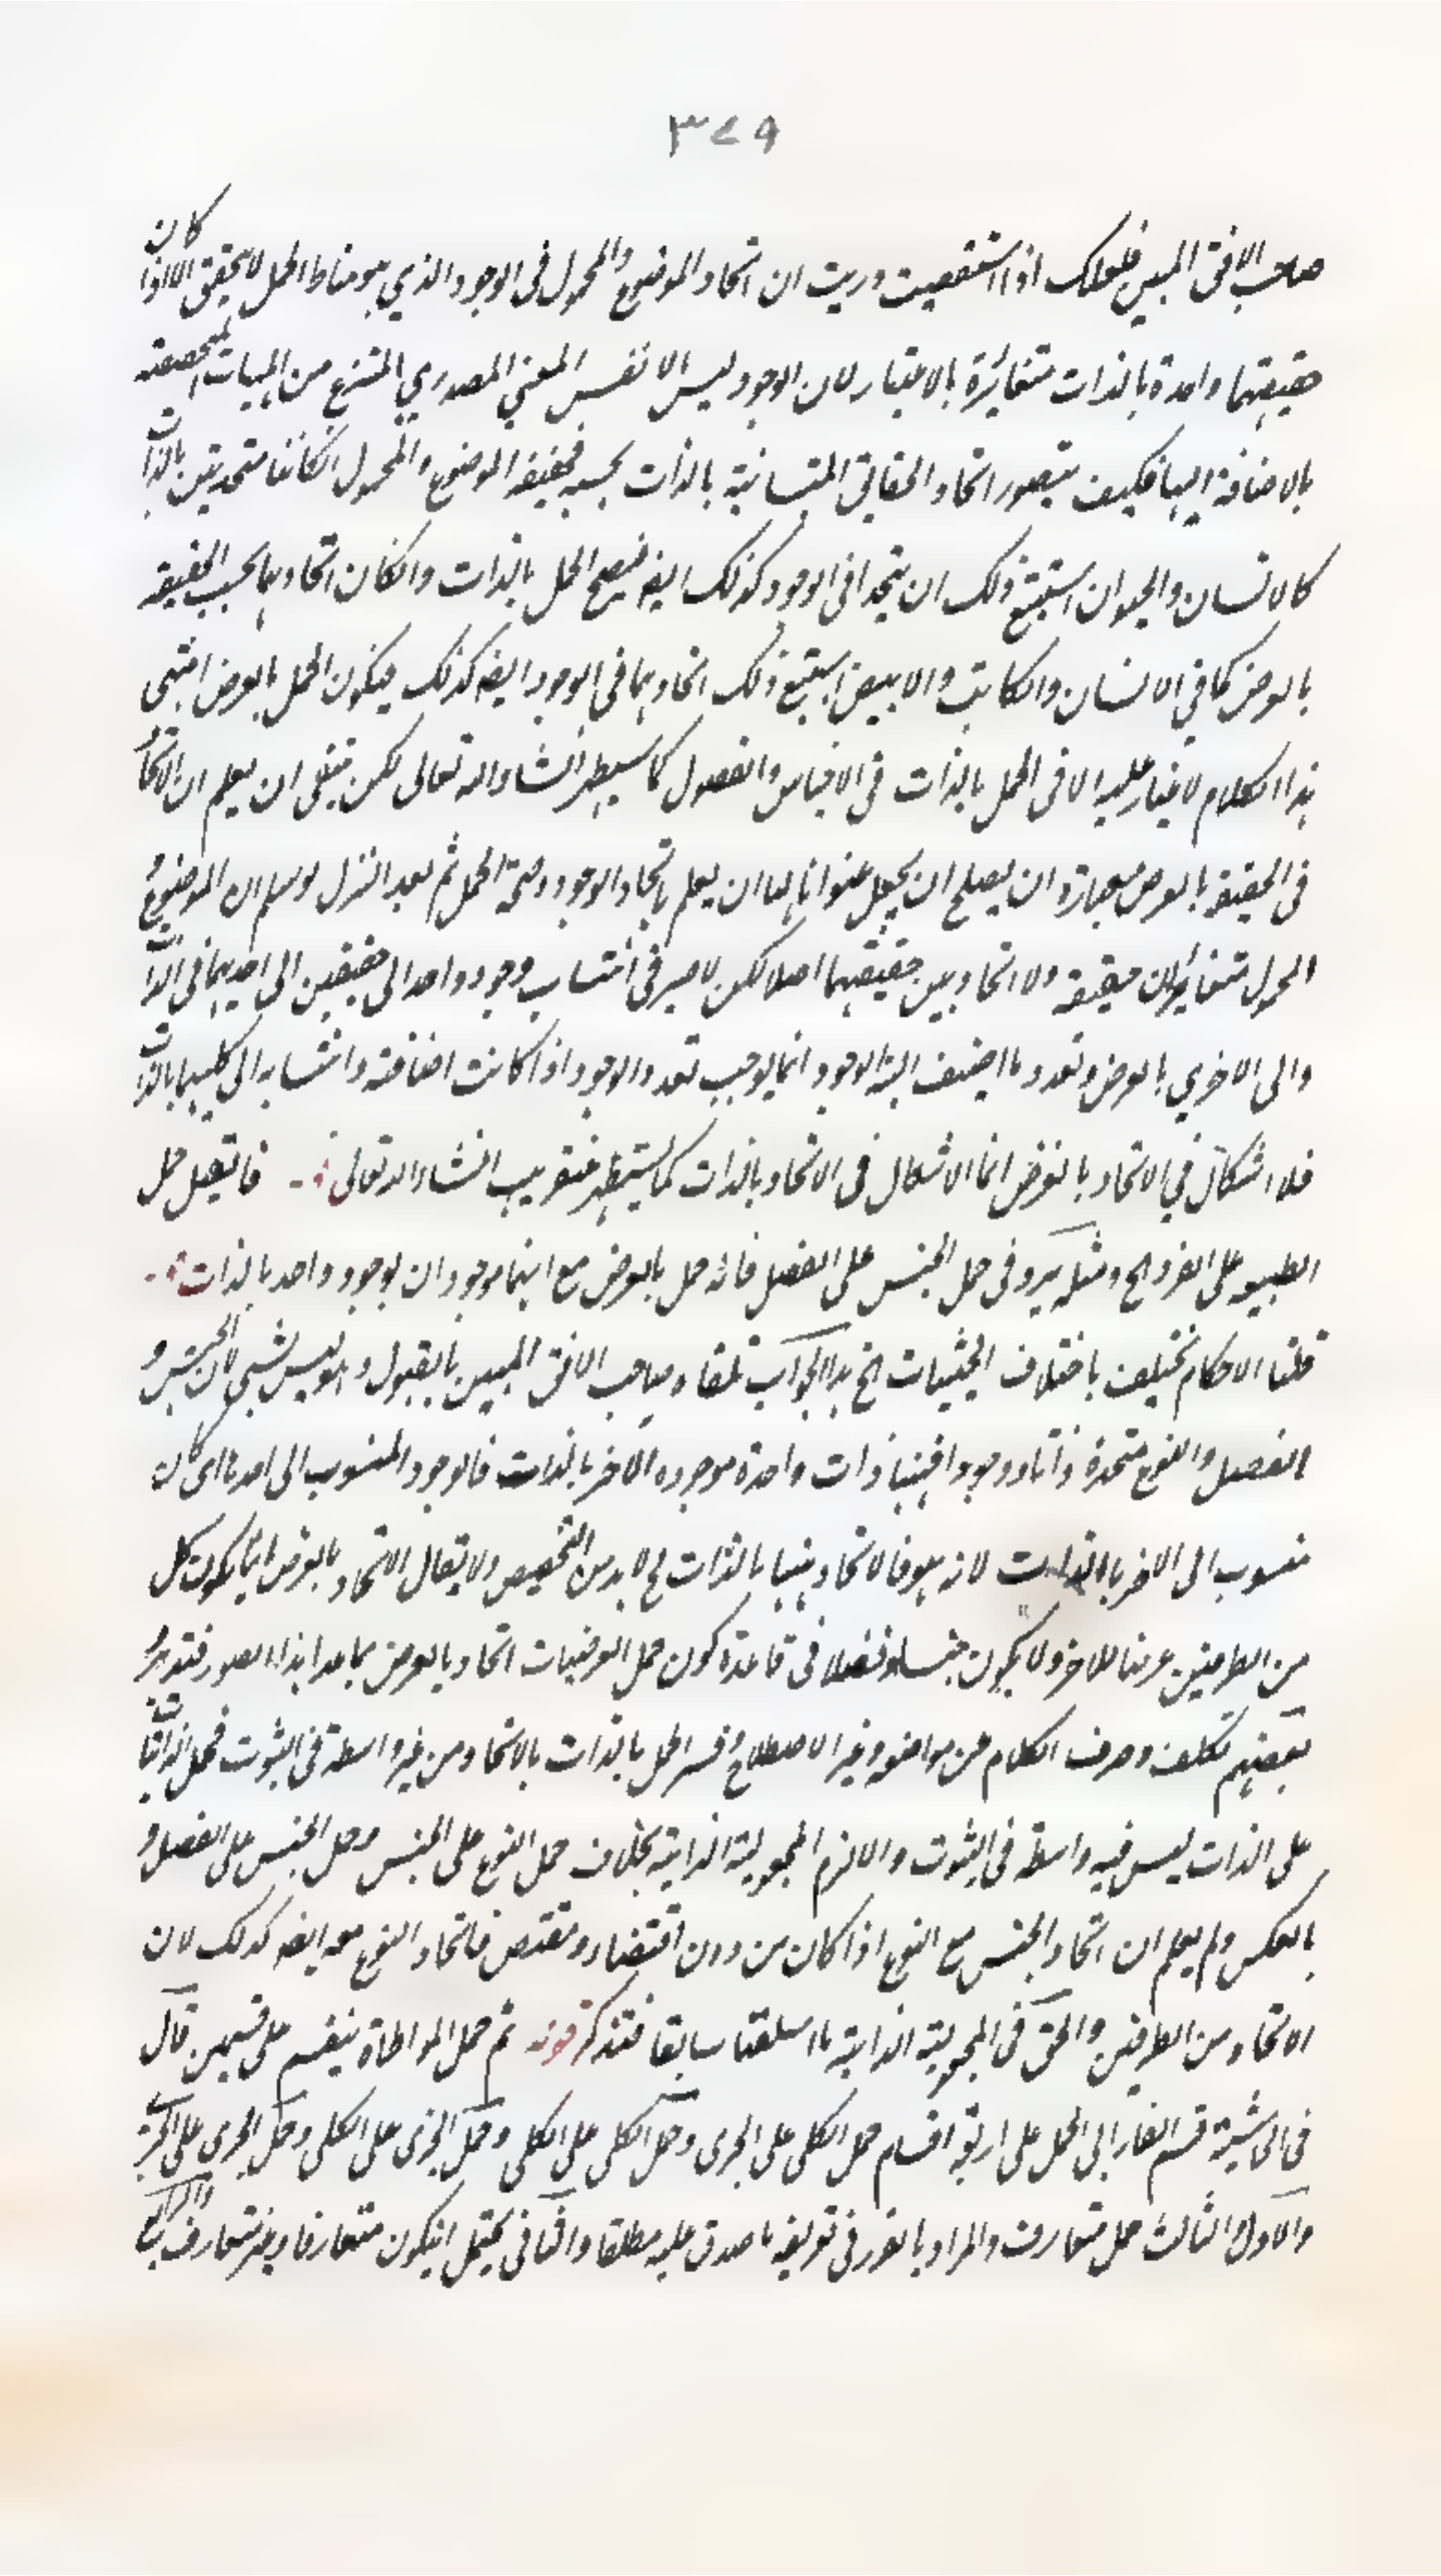 ٣٧٩
صاحب الافق المبين فلعلك اذا استقصيت دريت ان اتحاد الموضوع والمحمول فى الوجود الذي هو مناط الحمل لا يتحقق الا اذا كان
حقيقتهما واحدة بالذات متغائرة بالاعتبار لان الوجود ليس الا نفس المعني المصدري المنتزع من المهيات المتحصصة
بالاضافة اليها فكيف يتصور اتحاد الحقائق المتبائنة بالذات بحسبه فحقيقة الموضوع والمحمول انكانتا متحدتين بالذات
كالانسان والحيوان استتبع ذلك ان يتحدا فى الوجود كذلك ايضا فيصح الحمل بالذات وانكان اتحادهما بحسب الحقيقة
بالعرض كما في الانسان والكاتب والابيض استتبع ذلك اتحادهما في الوجود ايضا كذلك فيكون الحمل بالعرض انتهى
هذا الكلام لا غبار عليه الا فى الحمل بالذات في الاجناس والفصول كما سيظهر انشاء الله تعالى لكن ينبغى ان يعلم ان الاتحاد
فى الحقيقة بالعرض عبارة ان يصلح ان يجعل عنوانا لها ان يعلم باتحاد الوجود وصحة الحمل ثم بعد التنزل لو سلم ان الموضوع و
المحمول متغائران حقيقة ولا اتحاد بين حقيقتهما اصلا لكن لا ضير فى انتساب وجود واحد الى حقيقتين الى احدهما فى الذات
والى الاخرى بالعرض وتعدد ما اضيف اليه الوجود انما يوجب تعدد الوجود اذا كانت اضافته وانتسابه الى كليهما بالذات
فلا اشكال في الاتحاد بالعرض انما الاشكال فى الاتحاد بالذات كما سيظهر عنقريب انشاء الله تعالى فان قيل حمل
الطبيعة على الفرد الخ ومثله يرد فى حمل الجنس على الفصل فانه حمل بالعرض مع انهما موجودان بوجود واحد بالذات
قلنا الاحكام تختلف باختلاف الحيثيات الخ هذا الجواب تلقاه صاحب الافق المبين بالقبول وهو ليس بشي لان الجنس و
الفصل والنوع متحدة ذاتا ووجودا فهنا ذات واحدة موجودة الاخر بالذات فالوجود المنسوب الى احدها اى كان
منسوب الى الاخر بالذات لانه هو فالاتحاد بينها بالذات فلا بد من التخصيص ولا يقال الاتحاد بالعرض انما يكون كل
من الطرفين عرضا للاخر ولا يكون جنسا وفصلا فى قاعدة كون حمل العرضيات اتحاد بالعرض بما عدا هذا الصور فتدبر و
بعضهم تكلف وصرف الكلام عن مواضعه وغير الاصطلاح وفسر الحمل بالذات بالاتحاد من غير واسطة فى الثبوت فحمل الذاتيات
على الذات ليس فيه واسطة فى الثبوت والا لزم المجعولية الذاتية بخلاف حمل النوع على الجنس وحمل الجنس على الفصل و
بالعكس ولم يعلم ان اتحاد الجنس مع النوع اذا كان من دون اقتضاء ومقتض فاتحاد النوع معه ايضا كذلك لان
الاتحاد من الطرفين والحق فى المجعولية الذاتية ما اسلفنا سابقا فتذكر قوله ثم حمل المواطاة ينقسم على قسمين قال
فى الحاشية قسم الفارابى الحمل على اربعة اقسام حمل الكلى على الجزئى وحمل الكلى على الكلى وحمل الجزئى على الكلى وحمل الجزئى على الجزئى
والاول والثالث حمل متعارف والمراد بالفرد فى تعريفه ما صدق عليه مطلقا والثانى يحتمل ان يكون متعارفا وغير متعارف والرابع